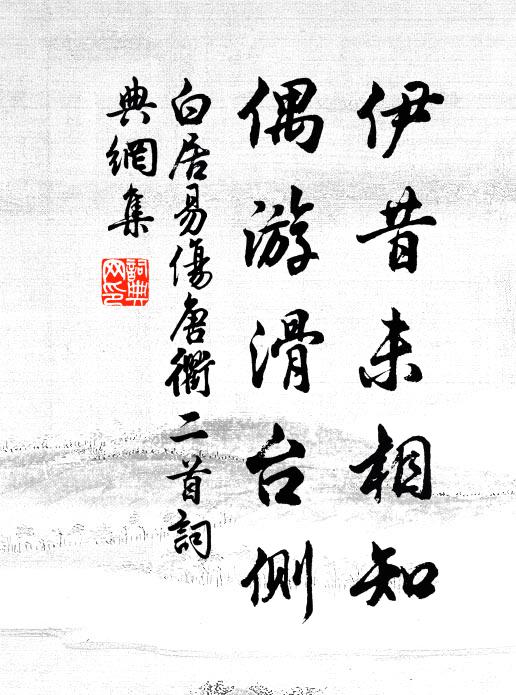 伊昔未相知
偶游滑台側
白居易傷唐衢二首詞
典網集
詞典
网印